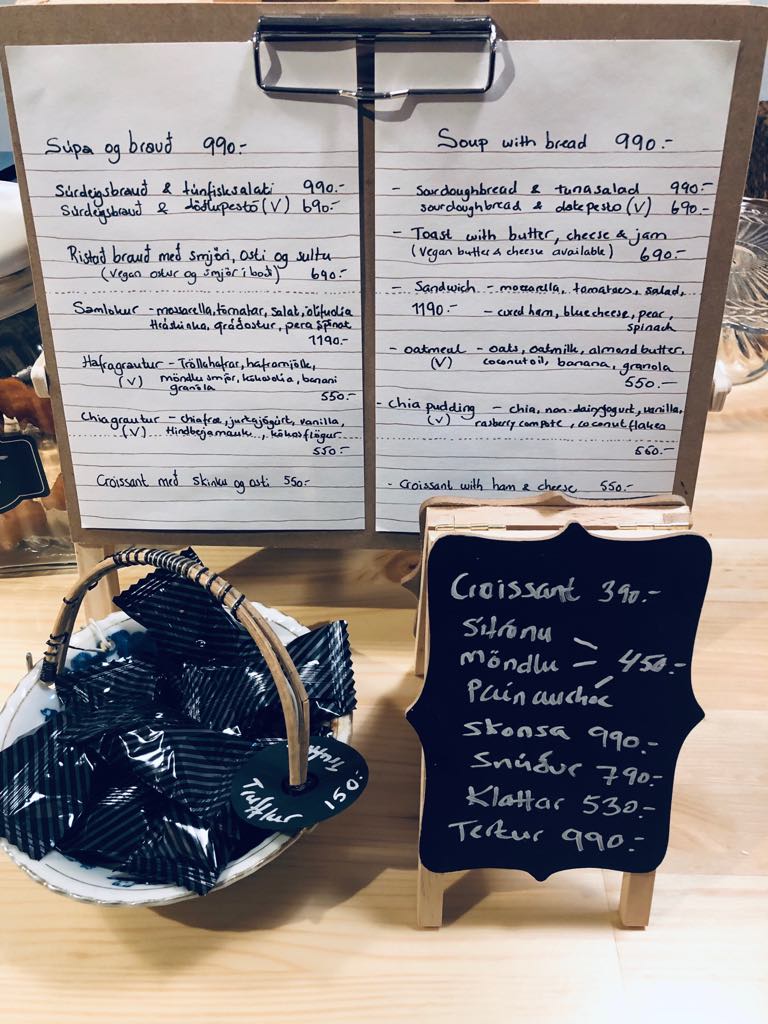 Súpa og brauð 990.-
Súrdeigsbrauð & túnfisksalati 990.-
Súrdeigsbrauð & döðlupestó (V) 690.-
Ristað brauð með smjöri, osti og sultu
(Vegan ostur og smjör í boði) 690.-
Samlokur - mossarella, tómatar, salat, ólífuolía
Hráskinka, gráðostur, pera spínat
1190.-
Hafragrautur - Tröllahafrar, haframjólk,
(V) möndlu smjör, kókosolía, banani
granola
550.-
Chiagrautur - chiafræ, jurtajógúrt, vanilla,
(V) Hindberjamauk, kókosflögur
550:-
Croissant með skinku og osti 550.-
Soup with bread 990.-
- sourdoughbread & tunasalad 990.-
sourdoughbread & datepesto (V) 690.-
- Toast with butter, cheese & jam
(Vegan butter & cheese available) 690.-
- Sandwich - mozzarella, tomatoes, salad,
1190.- - cured ham, blue cheese, pear,
spinach
- oatmeal - oats, oatmilk, almond butter,
(V) coconut oil, banana, granola
550.-
- Chia pudding - chia, non-dairy yogurt, vanilla,
(V) rasberry compote, coconut flakes
550:-
- Croissant with ham & cheese 550.-
Croissant 390.-
Sítrónu
Möndlu 450.-
Pain auchoc
Skonsa 990.-
Snúður 790.-
Klattar 530.-
Tertur 990.-
Trufflur
150.-